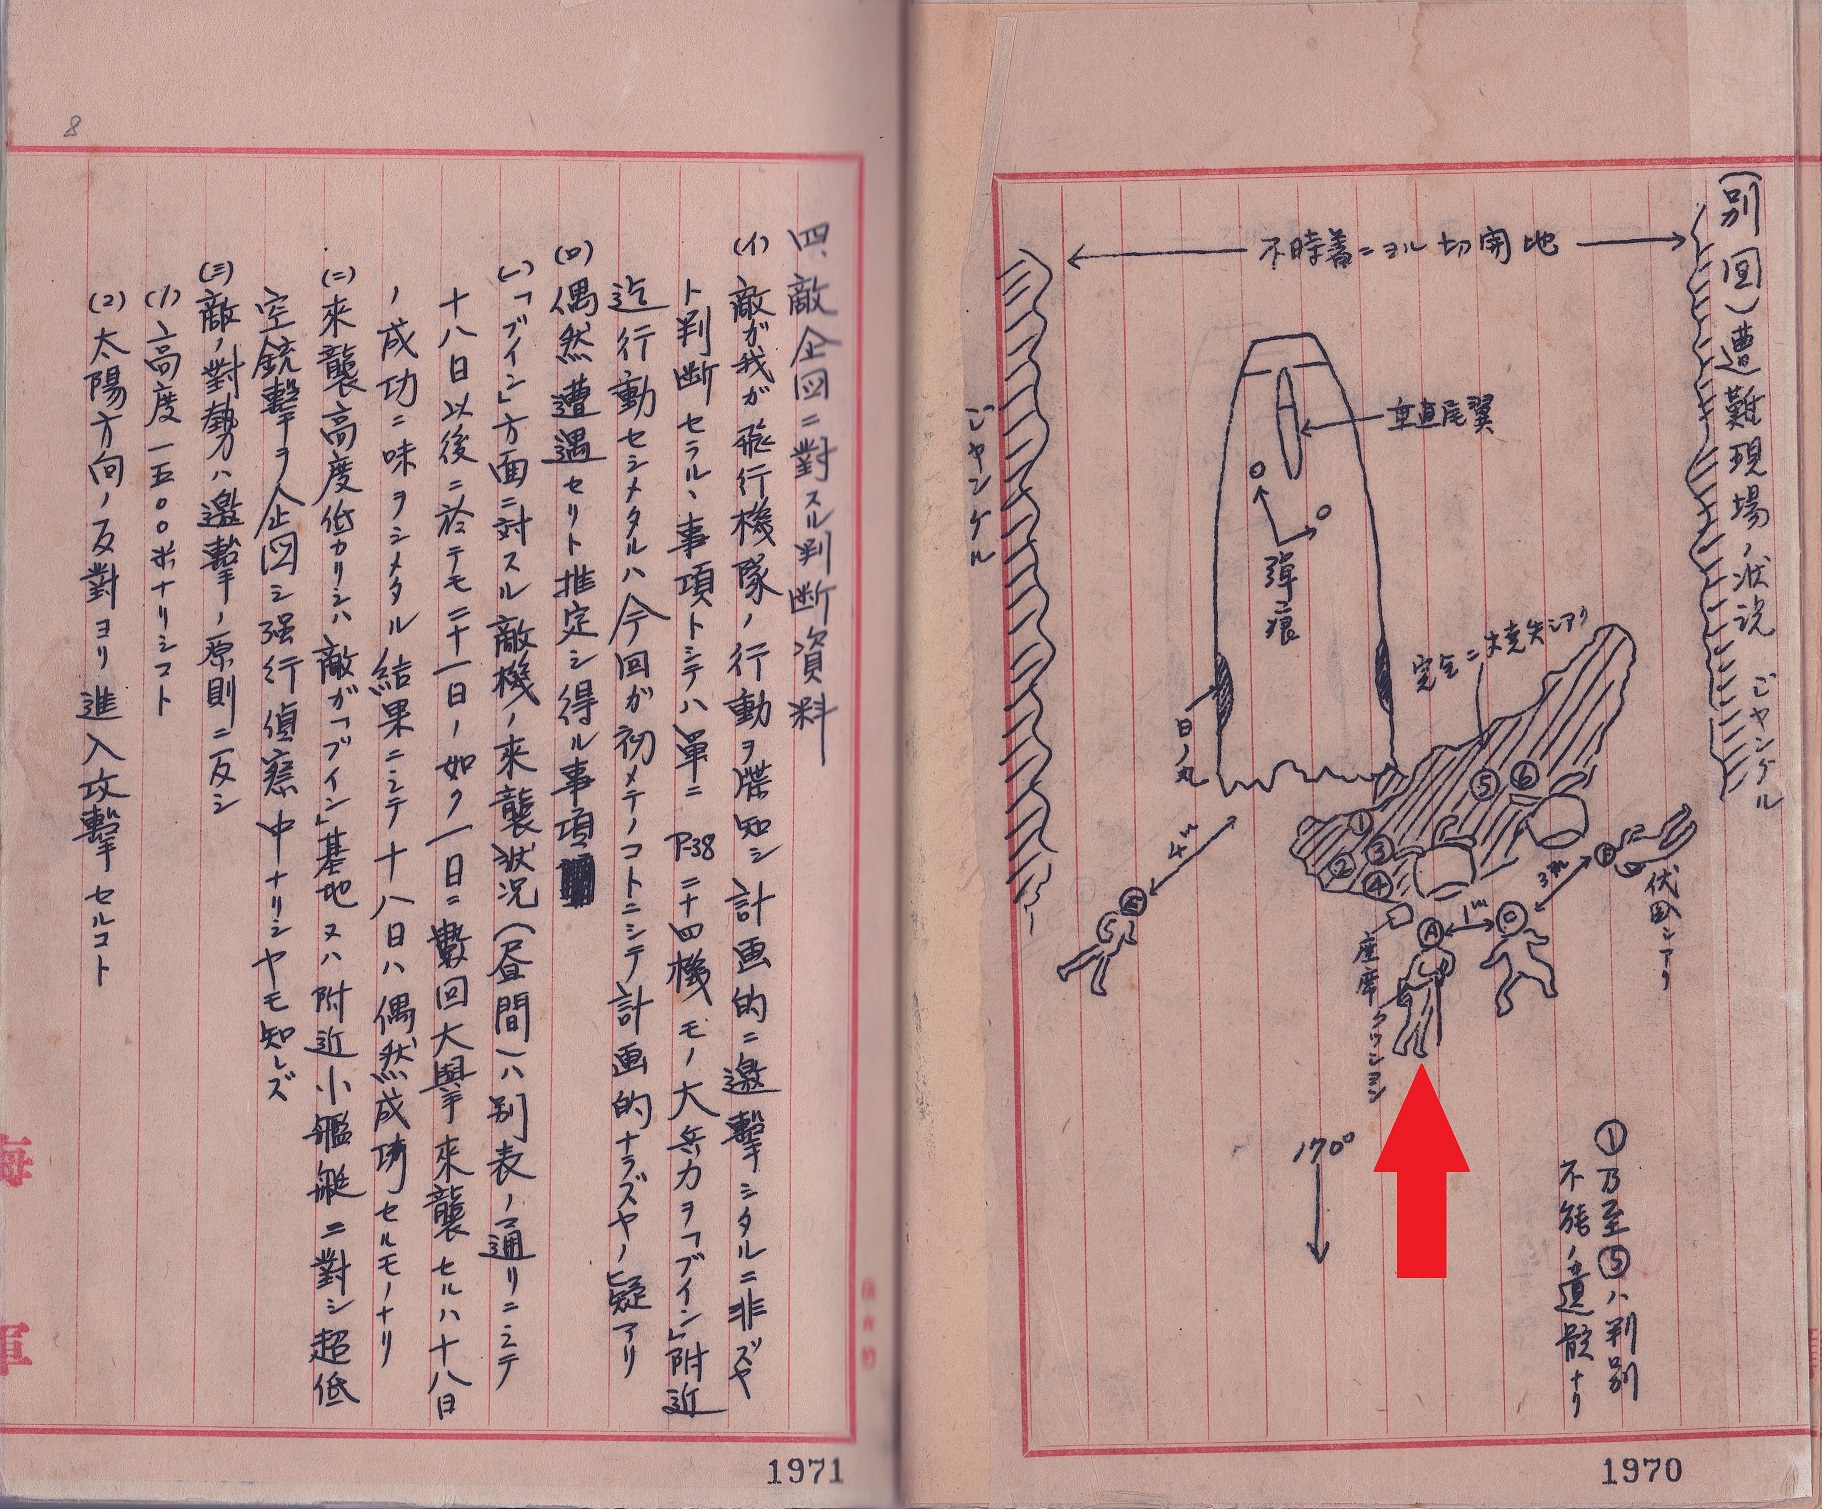 (別図)遭難現場ノ状況
ジャングル
不時着ニヨル切開地
垂直尾翼
弾痕
日ノ丸
ジャングル
完全ニ焼失シアリ
①
②
③
④
⑤
⑥
4m
1m
3m
A
C
伏臥シアリ
座席クッション
170°
①乃至⑤ハ判別
不能ノ遺骸ナリ
1970
8
四、敵企図ニ對スル判断資料
(イ)敵ガ我ガ飛行機隊ノ行動ヲ諜知シ計画的ニ邀撃シタルニ非ズヤ
ト判断セラルヽ事項トシテハ単ニP-38二十四機モノ大兵力ヲ「ブイン」附近
迄行動セシメタルハ今回ガ初メテノコトニシテ計画的ナラズヤノ疑アリ
(ロ)偶然遭遇セリト推定シ得ル事項
(一)「ブイン」方面ニ対スル敵機ノ来襲状況(昼間)ハ別表ノ通リニシテ
十八日以後ニ於テモ二十一日ノ如ク一日ニ数回大擧来襲セルハ十八日
ノ成功ニ味ヲシメタル結果ニシテ十八日ハ偶然成功セルモノナリ
(二)來襲高度低カリシハ敵ガ「ブイン」基地又ハ附近小艦艇ニ對シ超低
空銃撃ヲ企図シ强行偵察中ナリシヤモ知レズ
(三)敵ノ對勢ハ邀撃ノ原則ニ反シ
(1)高度一五〇〇米ナリシコト
(2)太陽方向ノ反對ヨリ進入攻撃セルコト
海
軍
1971